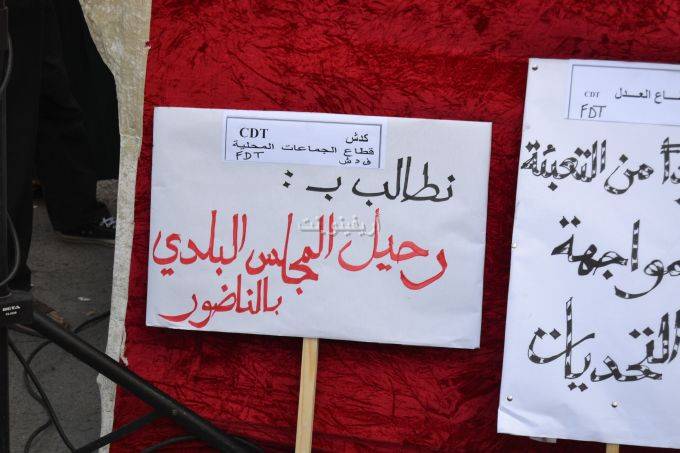 CDT كدش
قطاع الجماعات المحلية
FDT ف د ش
نطالب ب :
رحيل المجلس البلدي
بالناضور
أريفينو.نت
CDT قطاع العدل
FDT
من التعبئة
لمواجهة
التحديات